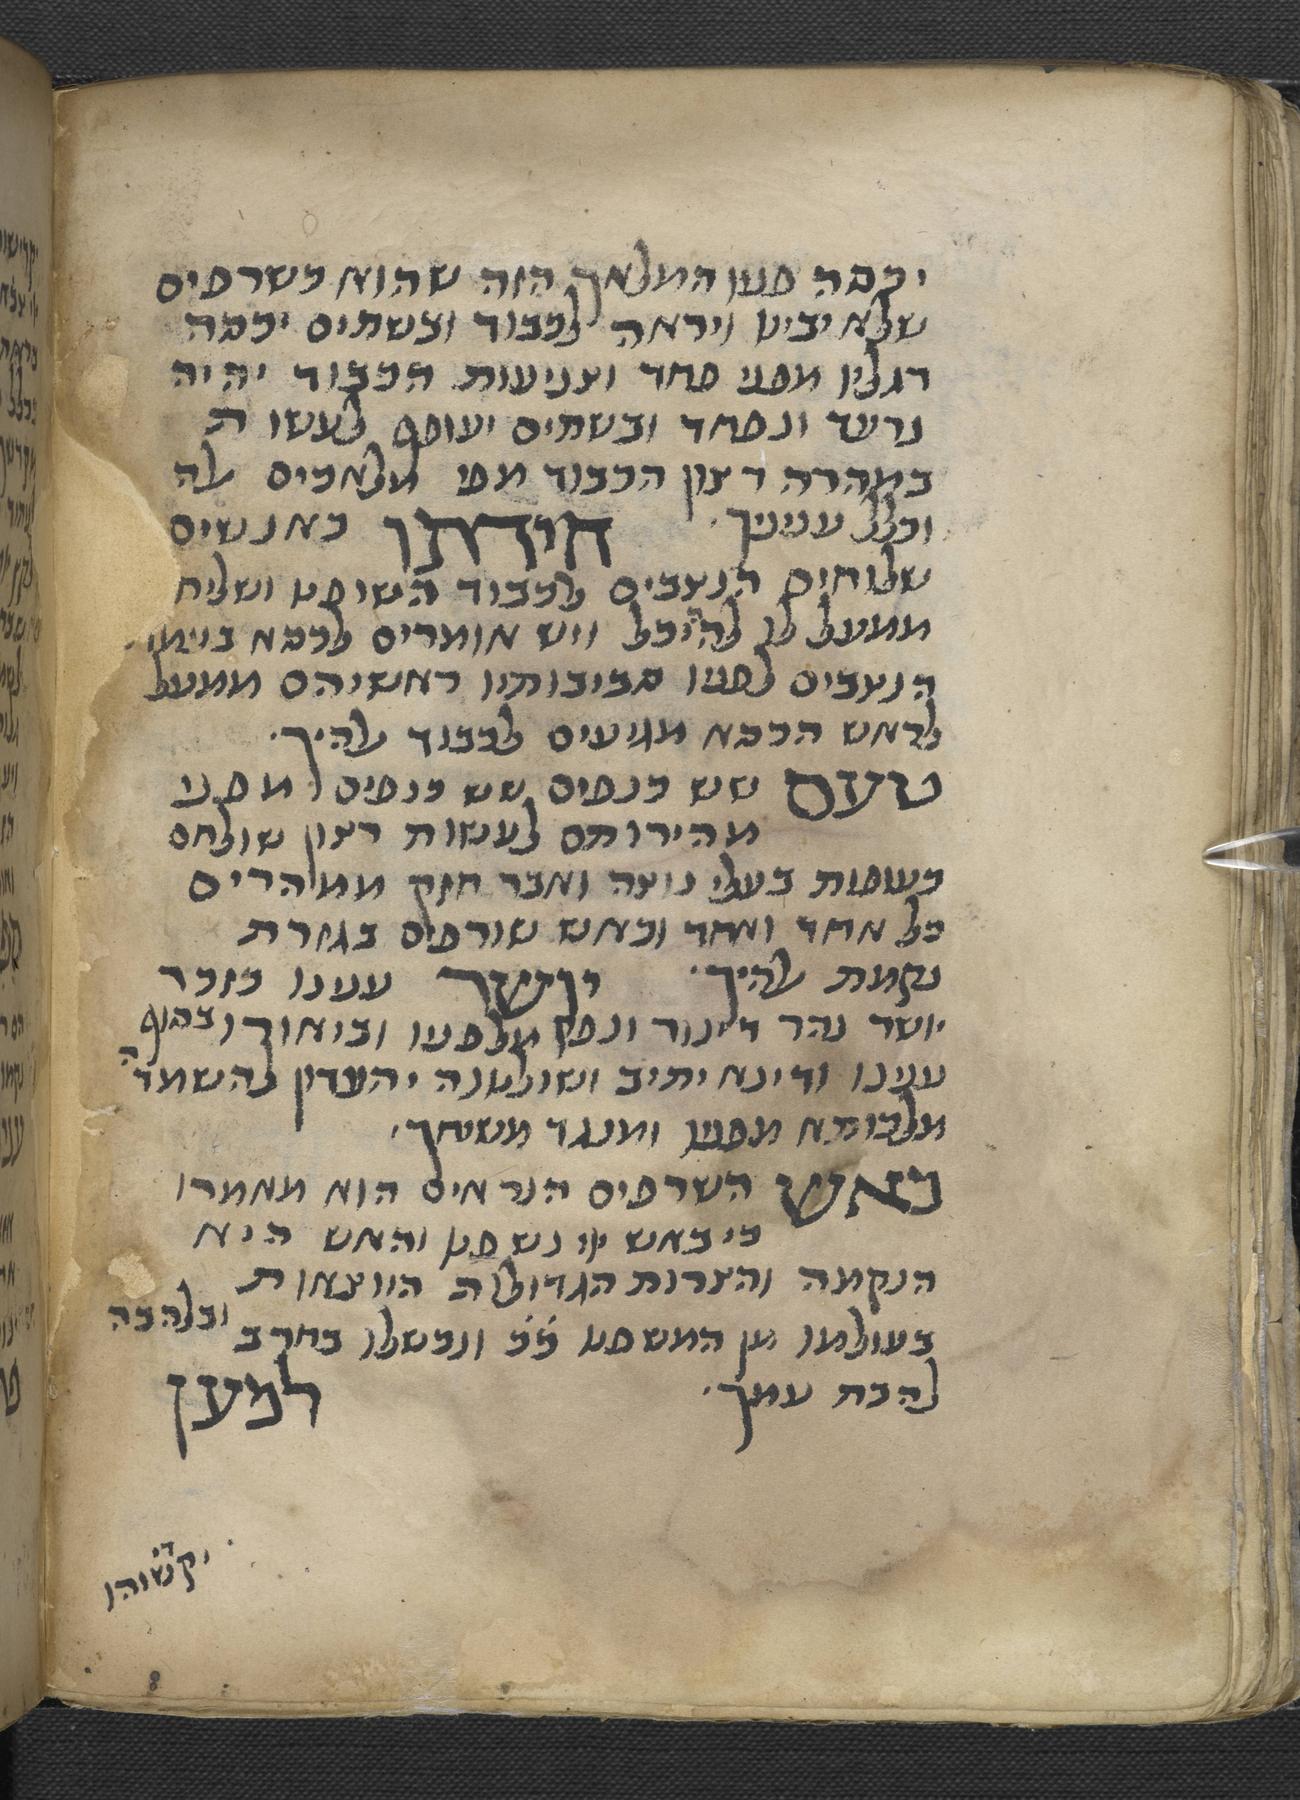 יכסה פניו המלאך הזה שהוא משרפים
שלא יביט ויראה לכבוד ובשתים יכסה
רגליו מפני פחד וצניעות הכבוד יהיה
נרעד ונפחד ובשתים יעופף לעשות
במהרה רצון הכבוד מפי מלאכים לה
וכלל עניניך חידתן כאנשים
שלוחים הנצבים לכבוד השופט ושליח
ממעל לו להיכל ויש אומרים לכסא
הנצבים לפניו סביבותיו ראשיהם ממעל
לראש הכסא מגיעים לכבוד להיך
טעם שש כנפים שש כנפים מפני
מהירותם לעשות רצון שולחם
כעופות בעלי נוצה ואבר חזק ממהרים
כל אחד ואחד וכאש שורפים בגזרת
נקמת להיך ויושר ענינו כזכר
יושר נהר דינור ונפק מלפניו וביאורו בסוף
ענינו ודינא יתיב ושולטנה יהעדון להשמדה
מלכותא מפניו ומנגד משיחך
כאש השרפים הנראים הוא מאמרו
כי באש יי נשפט והאש היא
הנקמה והצרות הגדולות היוצאות
בעולמו מן המשפט ונכשלו בחרב ובלהבה
להבת עמך למען
יקדישוהו